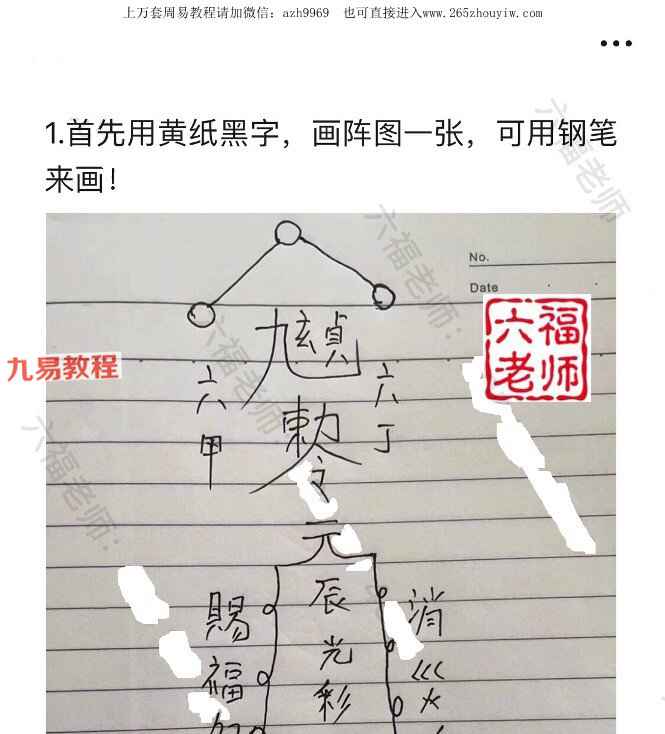 上万套周易教程请加微信：azh9969　也可直接进入www.265zhouyiw.com
1.首先用黄纸黑字，画阵图一张，可用钢笔
来画！
No.
Date
六福
老师
九易教程
六甲
六丁
敕令
元
辰光彩
賜福
消
六福老师：
六福老师：
六福老师：
六福老师